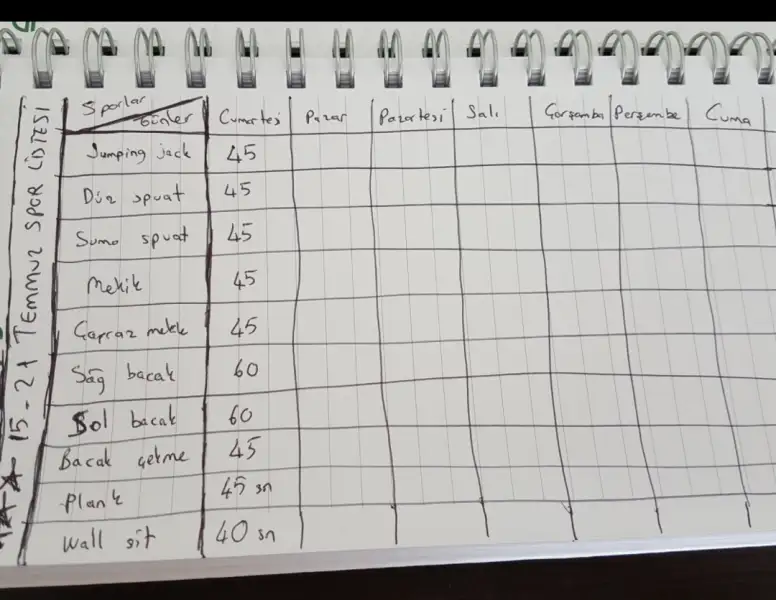 15-21 TEMMUZ SPOR LİSTESİ
Sporlar Günler Cumartesi Pazar Pazartesi Salı Çarşamba Perşembe Cuma
Jumping jack 45
Düz spuat 45
Sumo spuat 45
Mekik 45
Çapraz mekik 45
Sağ bacak 60
Sol bacak 60
Bacak çekme 45
Plank 45 sn
Wall sit 40 sn